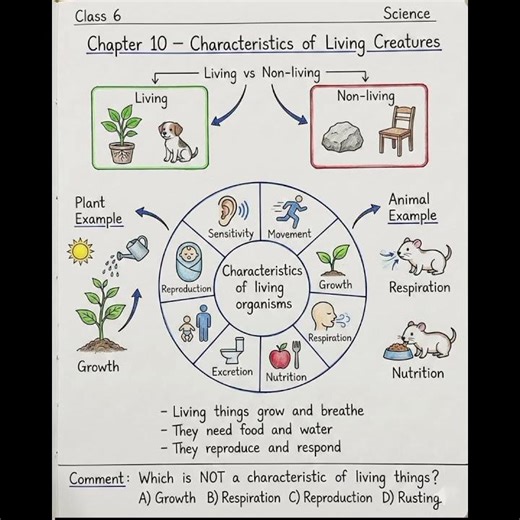 Class 6
Science
Chapter 10 – Characteristics of Living Creatures
Living vs Non-living
Living
Non-living
Plant
Example
Animal
Example
Sensitivity
Movement
Reproduction
Growth
Characteristics
of living
organisms
Respiration
Excretion
Nutrition
Growth
Respiration
Nutrition
- Living things grow and breathe
- They need food and water
- They reproduce and respond
Comment: Which is NOT a characteristic of living things?
A) Growth B) Respiration C) Reproduction D) Rusting